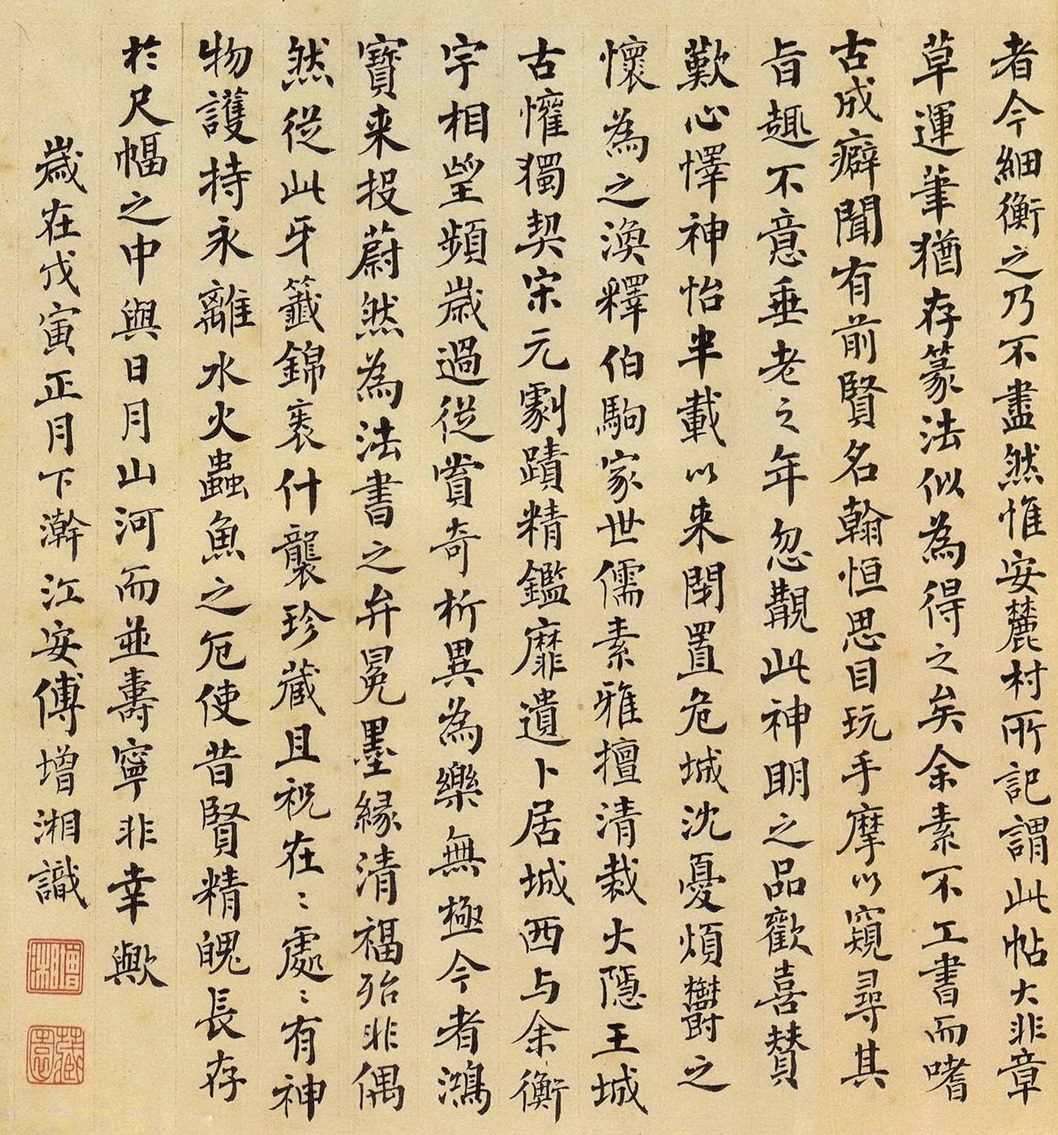 者今細衡之乃不盡然惟安麓村所記謂此帖大非章
草運筆猶存篆法似為得之矣余素不工書而嗜
古成癖聞有前賢名翰恒思目玩手摩以窺尋其
旨趣不意垂老之年忽覩此神明之品歡喜贊
歎心懌神怡半載以來閉置危城沈憂煩鬱之
懷為之渙釋伯駒家世儒素雅擅清裁大隱王城
古懽獨契宋元劇蹟精鑑靡遺卜居城西与余衡
宇相望頻歲過從賞奇析異為樂無極今者鴻
寶來投蔚然為法書之弁冕墨緣清福殆非偶
然從此牙籤錦裹什襲珍藏且祝在〻處〻有神
物護持永離水火蟲魚之厄使昔賢精魄長存
於尺幅之中與日月山河而並壽寧非幸歟
歲在戊寅正月下澣江安傅增湘識
增湘
藏園